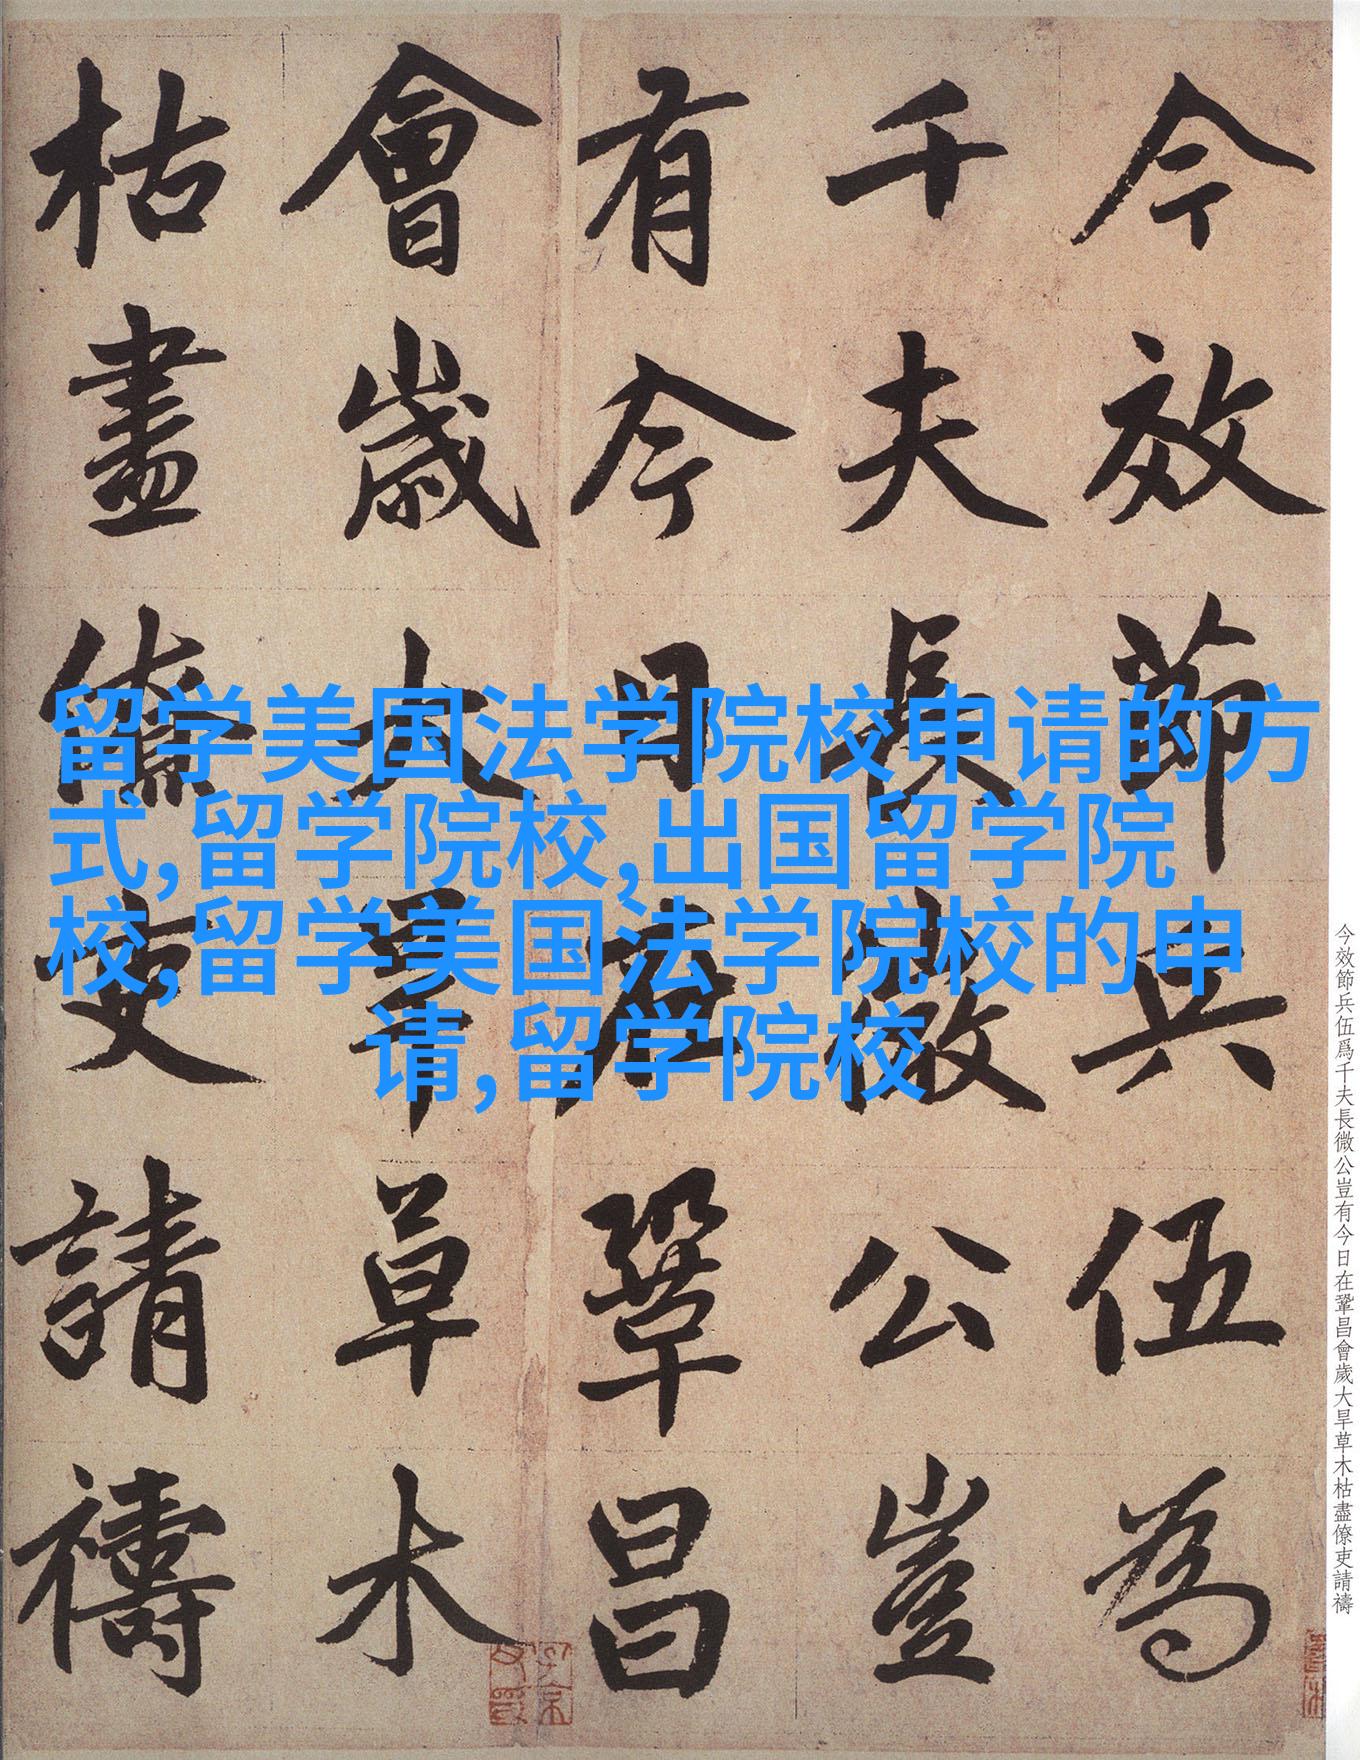 今效節兵伍為
千夫長微公豈
有今日在鞏昌
會歲大旱草木
枯盡僚吏請禱
留学美国法学院校申请的方
式,留学院校,出国留学院
校,留学美国法学院校的申
请,留学院校
今效節兵伍爲千夫長微公豈有今日在鞏昌會歲大旱草木枯盡僚吏請禱